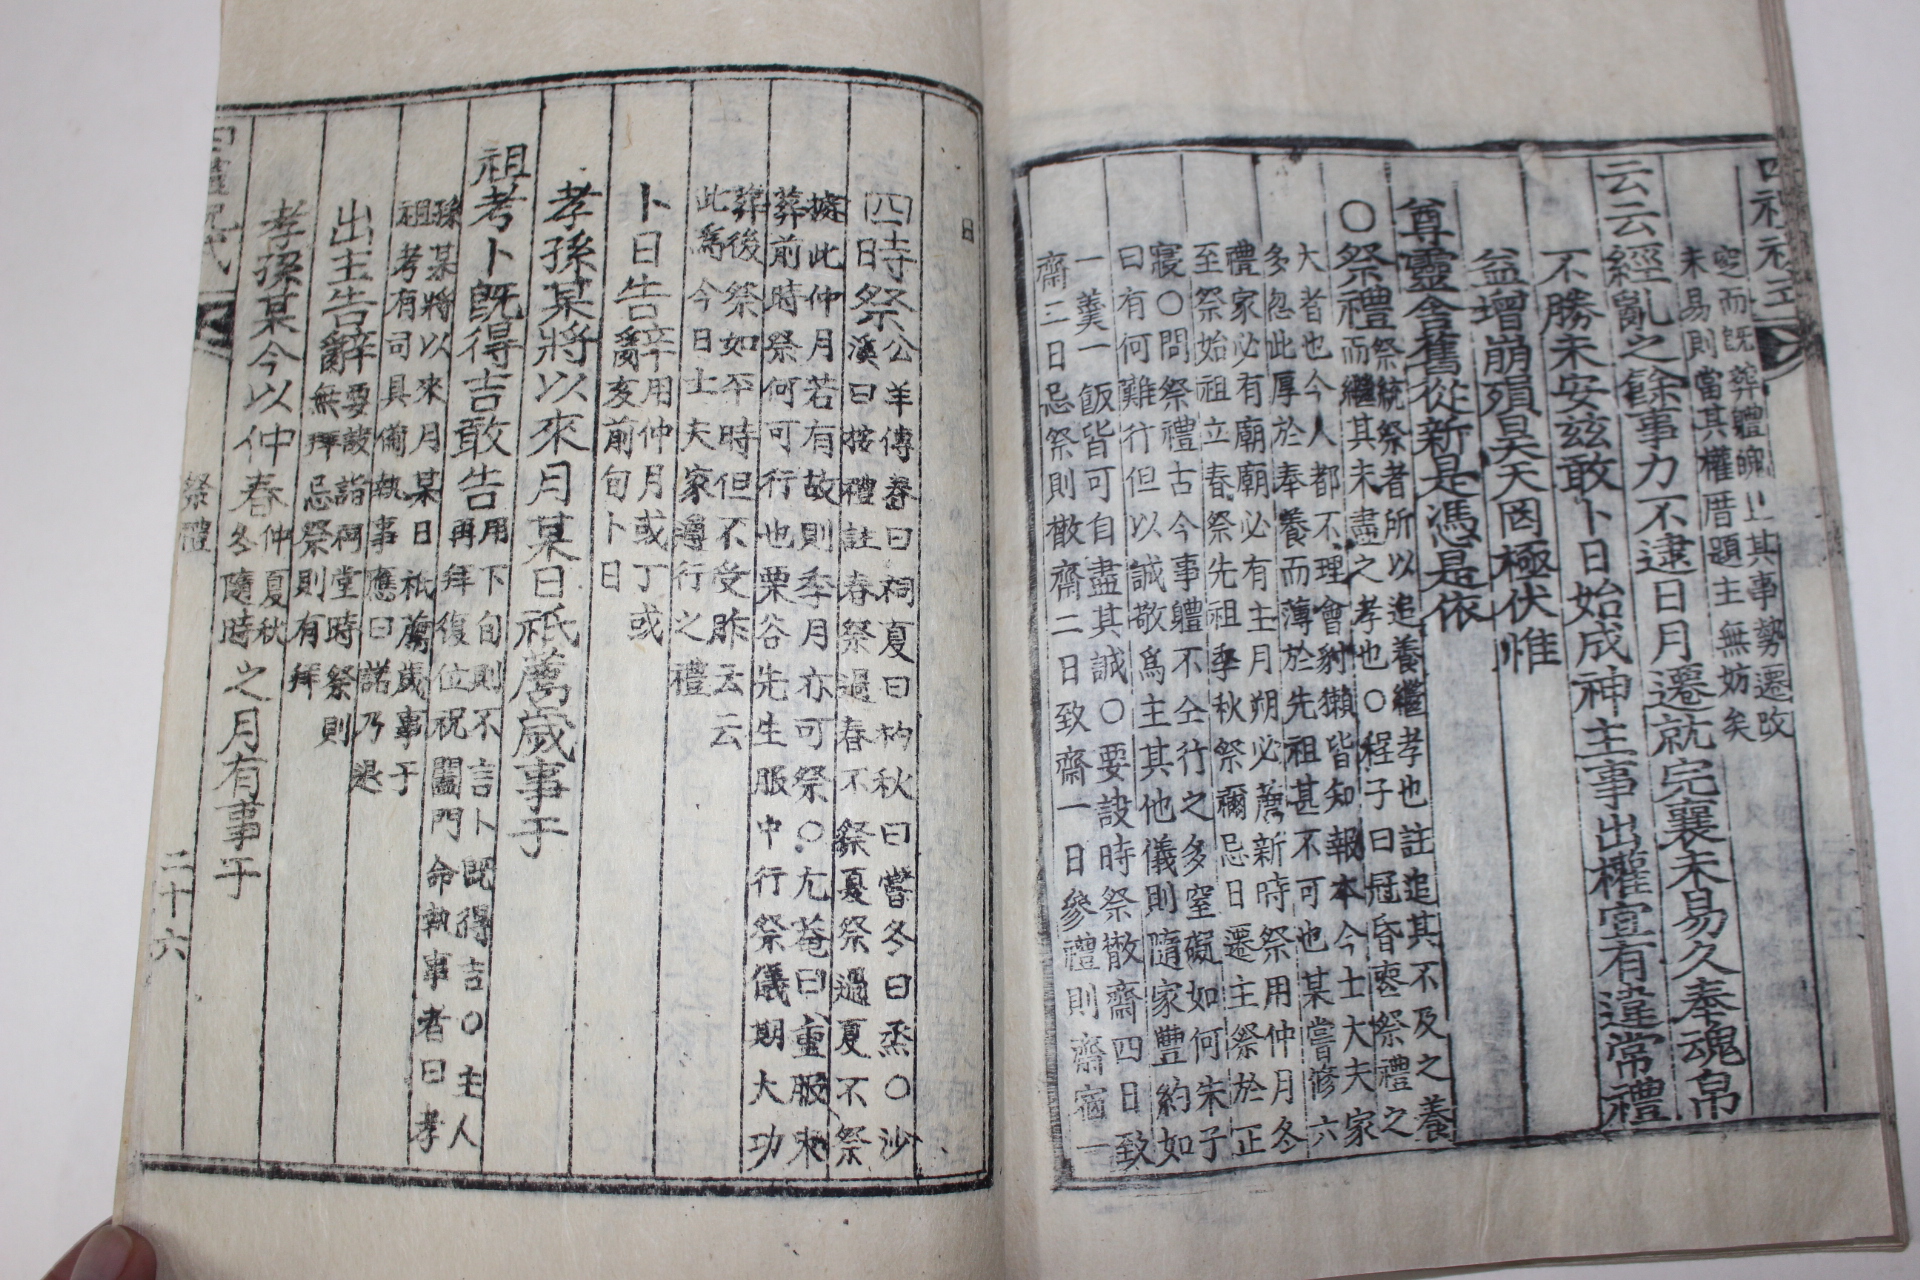 四禮祝式
空而旣葬體魄止其事勢遷改
未易則當其權厝題主無妨矣
云云經亂之餘事力不逮日月遷就完襄未易久奉魂帛
不勝未安玆敢卜日始成神主事出權宜有違常禮
益增崩殞昊天罔極伏惟
尊靈舍舊從新是憑是依
○祭禮祭統祭者所以追養繼孝也註追其不及之養
而繼其未盡之孝也○程子曰冠昏喪祭禮之
大者也今人都不理會豺獺皆知報本今士大夫家
多忽此厚於奉養而薄於先祖甚不可也某嘗修六
禮家必有廟廟必有主月朔必薦新時祭用仲月冬
至祭始祖立春祭先祖季秋祭禰忌日遷主祭於正
寢○問祭禮古今事體不仝行之多窒礙如何朱子
曰有何難行但以誠敬爲主其他儀則隨家豐約如
一羹一飯皆可自盡其誠○要訣時祭散齋四日致
齋三日忌祭則散齋二日致齋一日參禮則齋宿一
日
四時祭公羊傳春曰祠夏曰礿秋曰嘗冬曰烝○沙
溪曰按禮註春祭過春不祭夏祭過夏不祭
據此仲月若有故則季月亦可祭○尤菴曰重服未
葬前時祭何可行也栗谷先生服中行祭儀期大功
葬後祭如平時但不受胙云云
此爲今日士夫家遵行之禮
卜日告辭用仲月或丁或
亥前旬卜日
孝孫某將以來月某日祗薦歲事于
祖考卜旣得吉敢告用下旬則不言卜旣得吉○主人
再拜復位祝闔門命執事者曰孝
孫某將以來月某日祗薦歲事于
祖考有司具備執事應曰諾乃退
出主告辭要訣詣祠堂時祭則
無拜忌祭則有拜
孝孫某今以仲春仲夏秋冬隨時之月有事于
四禮祝式 祭禮 二十六